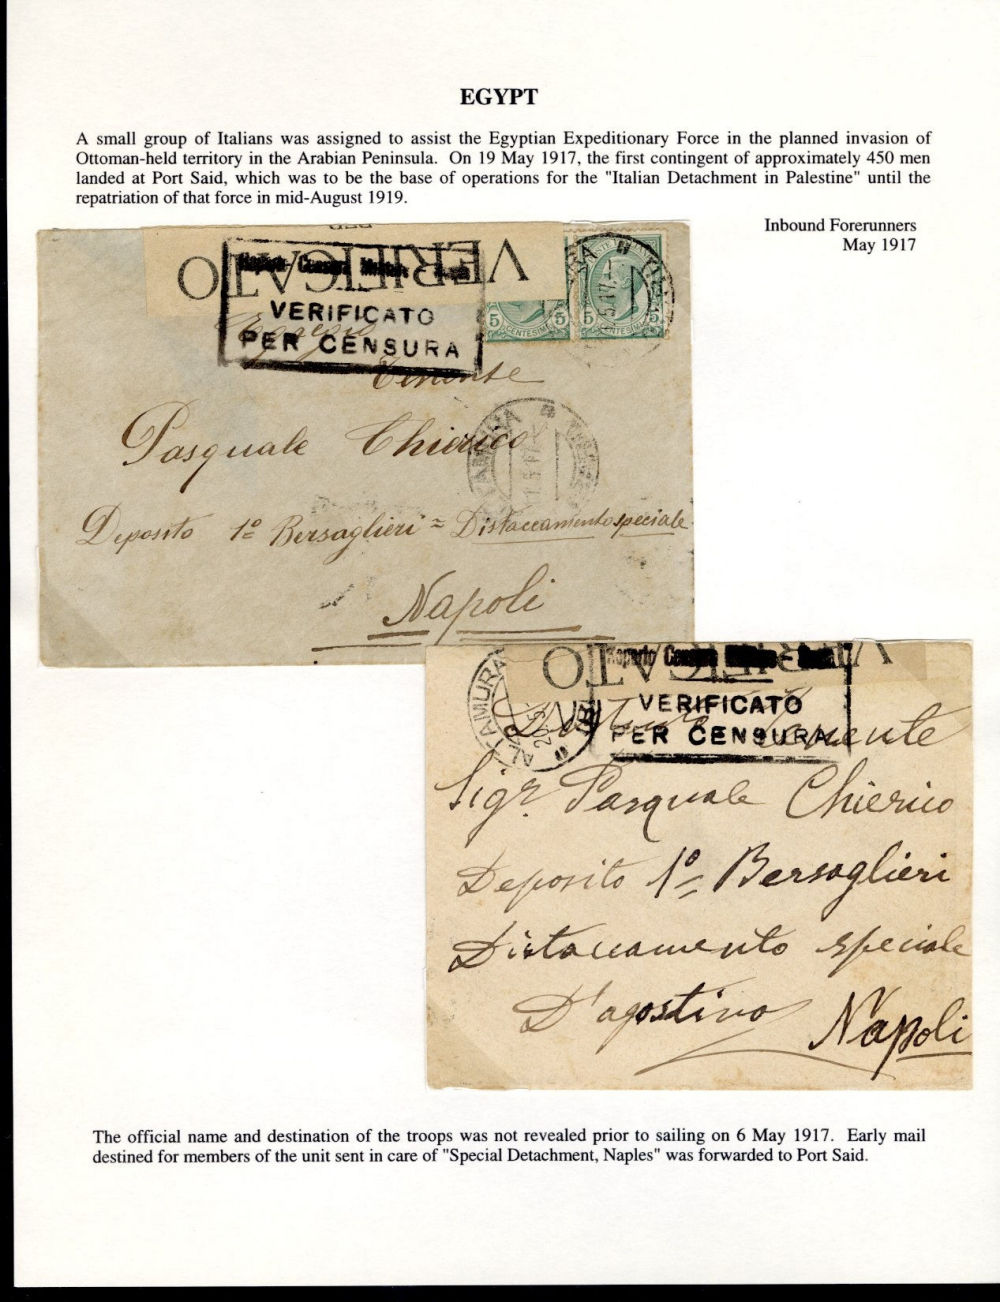 EGYPT
A small group of Italians was assigned to assist the Egyptian Expeditionary Force in the planned invasion of
Ottoman-held territory in the Arabian Peninsula. On 19 May 1917, the first contingent of approximately 450 men
landed at Port Said, which was to be the base of operations for the "Italian Detachment in Palestine" until the
repatriation of that force in mid-August 1919.
Inbound Forerunners
May 1917
VERIFICATO
VERIFICATO
PER CENSURA
5 CENTESIMI 5
5 CENTESIMI 5
Tenente
Pasquale Chierico
Deposito 1º Bersaglieri = Distaccamento speciale
Napoli
VERIFICATO
Reparto Censura
VERIFICATO
PER CENSURA
ALTAMURA
Tenente
Sigr. Pasquale Chierico
Deposito 1º Bersaglieri
Distaccamento speciale
D'agostino Napoli
The official name and destination of the troops was not revealed prior to sailing on 6 May 1917. Early mail
destined for members of the unit sent in care of "Special Detachment, Naples" was forwarded to Port Said.